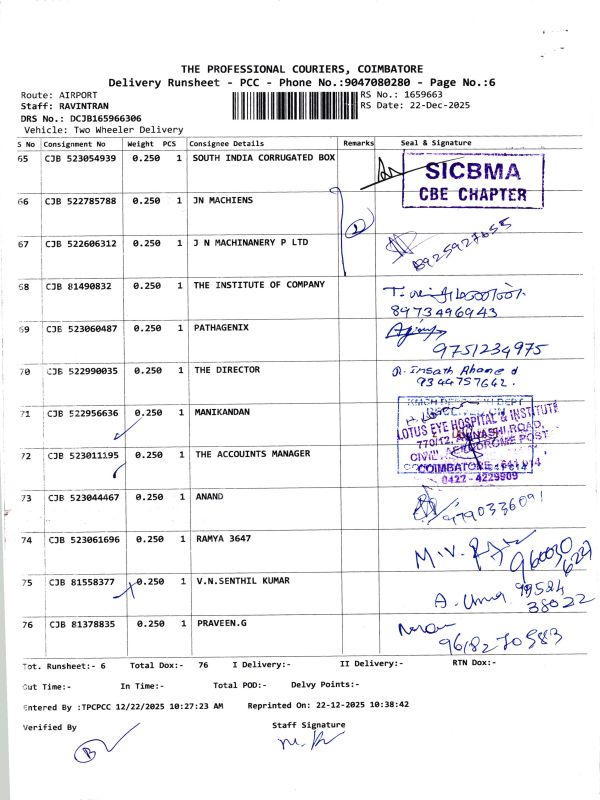 THE PROFESSIONAL COURIERS, COIMBATORE
Delivery Runsheet - PCC - Phone No.:9047080280 - Page No.:6
Route: AIRPORT RS No.: 1659663
Staff: RAVINTRAN RS Date: 22-Dec-2025
DRS No.: DCJB165966306
Vehicle: Two Wheeler Delivery
S No Consignment No Weight PCS Consignee Details Remarks Seal & Signature
65 CJB 523054939 0.250 1 SOUTH INDIA CORRUGATED BOX SICBMA
CBE CHAPTER
66 CJB 522785788 0.250 1 JN MACHIENS
67 CJB 522606312 0.250 1 J N MACHINANERY P LTD 8925927655
68 CJB 81490832 0.250 1 THE INSTITUTE OF COMPANY
8973496943
69 CJB 523060487 0.250 1 PATHAGENIX
9751234975
70 CJB 522990035 0.250 1 THE DIRECTOR R. Insath Ahamed
9344757642.
71 CJB 522956636 0.250 1 MANIKANDAN
LOTUS EYE HOSPITAL & INSTITUTE
770/12, AVINASHI ROAD,
CIVIL AERODROME POST
72 CJB 523011195 0.250 1 THE ACCOUINTS MANAGER
COIMBATORE - 641 014
0422 - 4229909
73 CJB 523044467 0.250 1 ANAND 9790336091
74 CJB 523061696 0.250 1 RAMYA 3647 M.V.
75 CJB 81558377 0.250 1 V.N.SENTHIL KUMAR A. Uma 99524
38022
76 CJB 81378835 0.250 1 PRAVEEN.G
9618270583
Tot. Runsheet:- 6 Total Dox:- 76 I Delivery:- II Delivery:- RTN Dox:-
Out Time:- In Time:- Total POD:- Delvy Points:-
Entered By :TPCPCC 12/22/2025 10:27:23 AM Reprinted On: 22-12-2025 10:38:42
Verified By Staff Signature